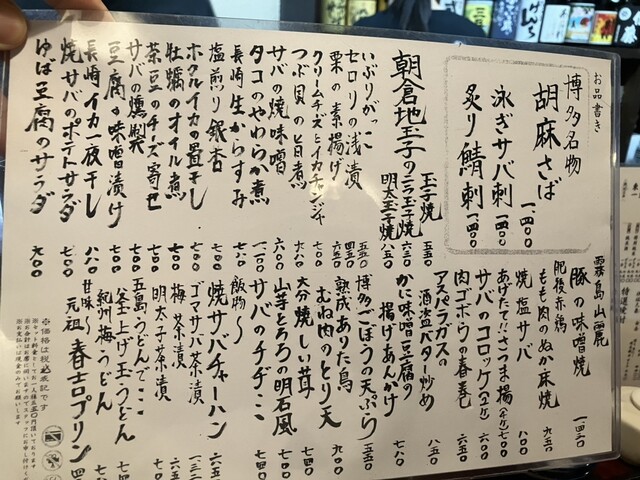 お品書き
博多名物
胡麻さば
一、一〇〇
泳ぎサバ刺 一、四〇〇
炙り鯖刺 一、四〇〇
朝倉地玉子の
玉子焼 五五〇
ニラ玉子焼 六五〇
明太玉子焼 八五〇
いぶりがっこ 五五〇
セロリの浅漬 四五〇
栗の素揚げ 六五〇
クリームチーズとイカチャンジャ 七〇〇
つぶ貝の旨煮 七八〇
サバの焼味噌 六〇〇
タコのやわらか煮 七八〇
長崎生からすみ 一、一〇〇
塩煎り銀杏 七〇〇
ホタルイカの畳干し 五〇〇
牡蠣のオイル煮 七〇〇
茶豆のチーズ寄せ 七〇〇
サバの燻製 七〇〇
豆腐の味噌漬け 五〇〇
長崎イカ一夜干し 八八〇
焼サバのポテトサラダ 七〇〇
ゆば豆腐のサラダ 九〇〇
霧島山麓
豚の味噌焼 一、四二〇
肥後赤鶏
もも肉のぬか床焼 九五〇
焼塩サバ 八〇〇
あげたて!!さつま揚 七〇〇
サバのコロッケ 六〇〇
肉ゴボウの春巻
アスパラガスの
酒盗バター炒め 八五〇
かに味噌豆腐の
揚げあんかけ 七八〇
博多ごぼうの天ぷら 五五〇
熟成ありた鳥
むね肉のとり天 九〇〇
大分焼しい茸 七四〇
山芋とろろの明石風 七四〇
サバのチヂミ
飯物〜
焼サバチャーハン
ゴマサバ茶漬
梅茶漬
明太子茶漬
五島うどんでこ
釜上げ玉うどん
紀州梅うどん
甘味〜
元祖 春吉プリン
※価格は税込表記です